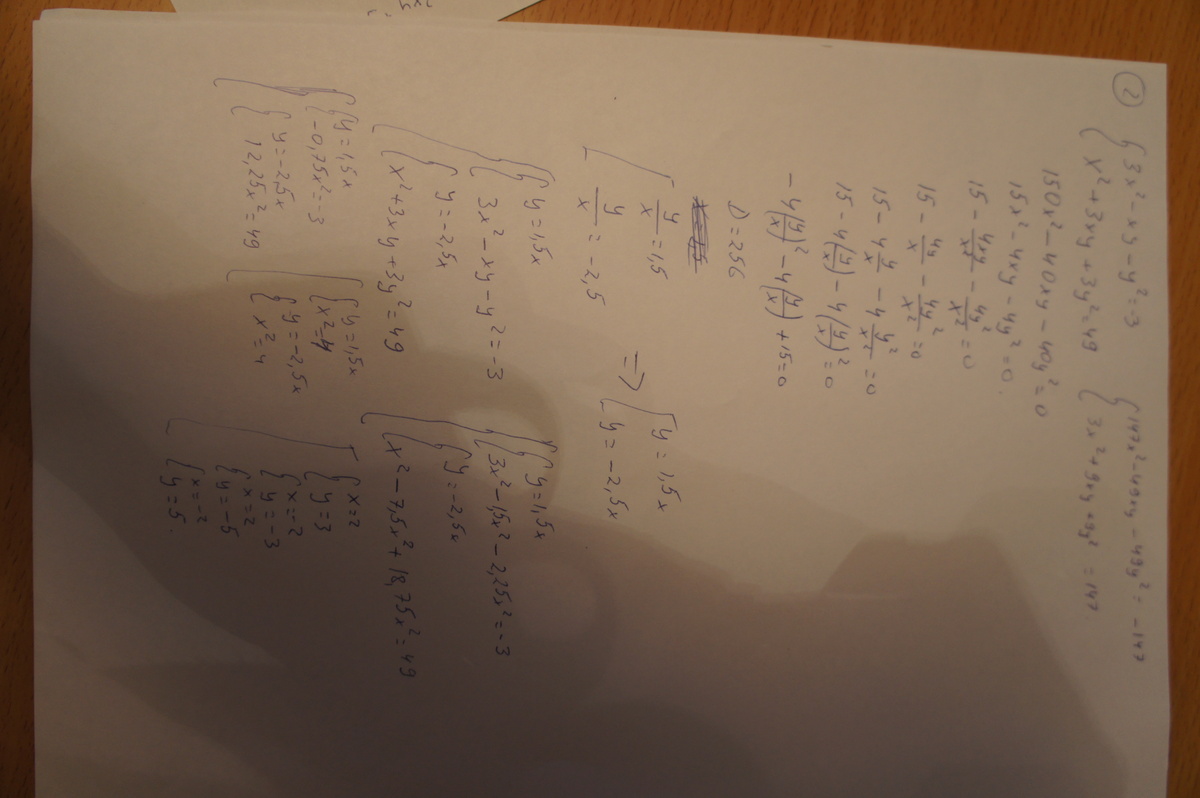 ②
{ 3x² - xy - y² = -3
{ x² + 3xy + 3y² = 49
{ 147x² - 49xy - 49y² = -147
{ 3x² + 9xy + 9y² = 147
150x² - 40xy - 40y² = 0
15x² - 4xy - 4y² = 0
15 - 4xy/x² - 4y²/x² = 0
15 - 4y/x - 4y²/x² = 0
15 - 4 y/x - 4 y²/x² = 0
15 - 4(y/x) - 4(y/x)² = 0
-4(y/x)² - 4(y/x) + 15 = 0
D = 256
[ y/x = 1,5
[ y/x = -2,5
=> [ y = 1,5x
[ y = -2,5x
[ { y = 1,5x
{ 3x² - xy - y² = -3
{ y = -2,5x
{ x² + 3xy + 3y² = 49
[ { y = 1,5x
{ 3x² - 1,5x² - 2,25x² = -3
{ y = -2,5x
{ x² - 7,5x² + 18,75x² = 49
[ { y = 1,5x
{ -0,75x² = -3
{ y = -2,5x
{ 12,25x² = 49
[ { y = 1,5x
{ x² = 4
{ y = -2,5x
{ x² = 4
[ { x = 2
{ y = 3
{ x = -2
{ y = -3
{ x = 2
{ y = -5
{ x = -2
{ y = 5.